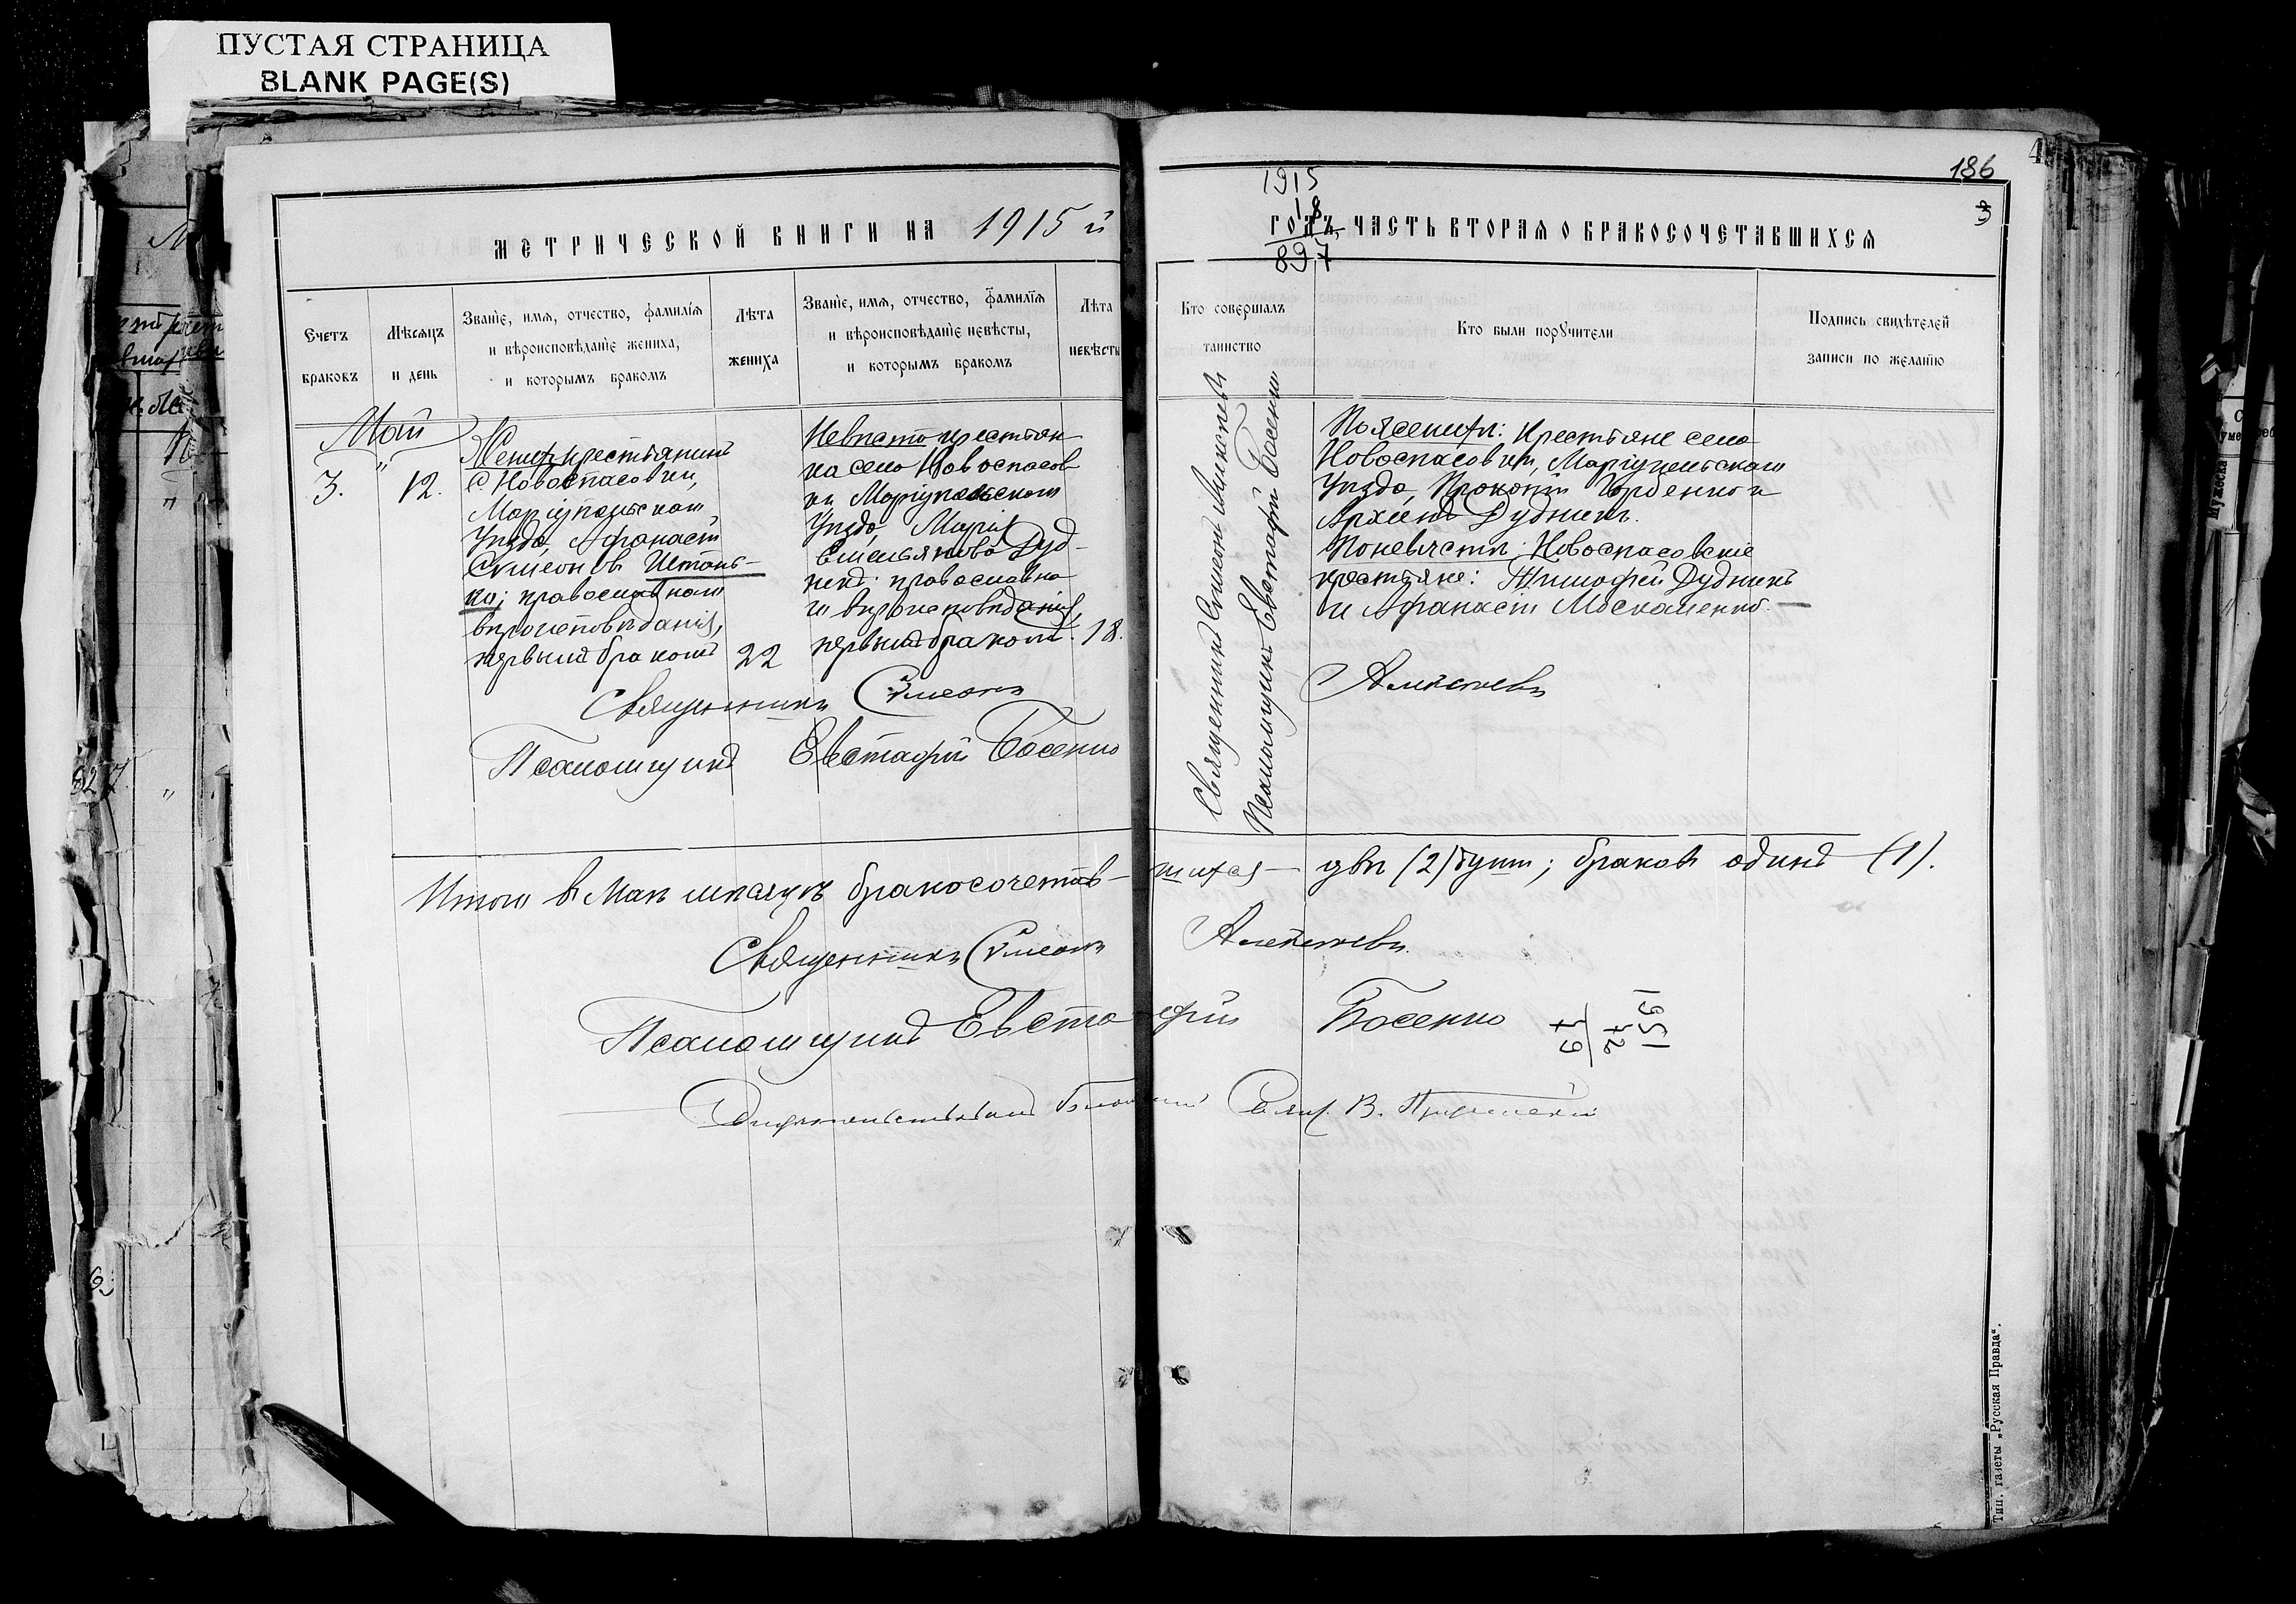 ПУСТАЯ СТРАНИЦА
BLANK PAGE(S)
186
3
1915
18
897
МЕТРИЧЕСКОЙ КНИГИ НА 1915 й
ГОДЪ, ЧАСТЬ ВТОРАЯ О БРАКОСОЧЕТАВШИХСЯ
Счетъ браковъ
Мѣсяцъ и день
Званіе, имя, отчество, фамилія
и вѣроисповѣданіе жениха,
и которымъ бракомъ
Лѣта жениха
Званіе, имя, отчество, фамилія
и вѣроисповѣданіе невѣсты,
и которымъ бракомъ
Лѣта невѣсты
Кто совершалъ таинство
Кто были поручители
Подпись свидѣтелей
записи по желанію
Май
3. 12.
Женихъ крестьянинъ
с. Новоспасовки,
Маріупольскаго
Уѣзда, Афанасій
Сѵмеоновъ Истонь-
ко; православнаго
вѣроисповѣданія,
первымъ бракомъ
22
Невѣста крестьян-
ка села Новоспасов-
ки Маріупольскаго
Уѣзда, Марія
Емельянова Дуд-
никъ; православна-
го вѣроисповѣданія,
первымъ бракомъ.
18.
Священникъ Сѵмеонъ Алексѣевъ
Псаломщикъ Евстафій Босенко
По женихѣ: крестьяне села
Новоспасовки, Маріупольскаго
Уѣзда, Прокопій Горбенко и
Архипъ Дудникъ.
По невѣстѣ: Новоспасовскіе
крестьяне: Тимофей Дудникъ
и Афанасій Москаленко.
Священникъ Сѵмеонъ Алексѣевъ
Псаломщикъ Евстафій Босенко
Итого въ Маѣ мѣсяцѣ бракосочетав-шихся — двѣ (2) душ; браковъ одинъ (1).
Священникъ Сѵмеонъ Алексѣевъ.
Псаломщикъ Евстафій Босенко
1951
72
79
Свящ. В.
Тип. газеты „Русская Правда“.